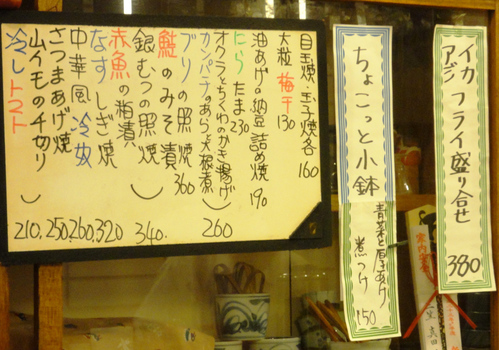 目玉焼・玉子焼各 160
大粒 梅干 130
にら たま 230
油あげの納豆詰め焼 190
オクラとちくわのかき揚げ
カンパチのあら大根煮 260
ブリの照焼 360
鮭のみそ漬
銀むつの照焼 340
赤魚の粕漬
なすしぎ焼 320
中華風冷奴 260
さつまあげ焼 250
山イモの千切り
冷しトマト 210
ちょこっと小鉢
青菜と厚あげ煮つけ 150
イカ
アジ フライ盛り合せ 380